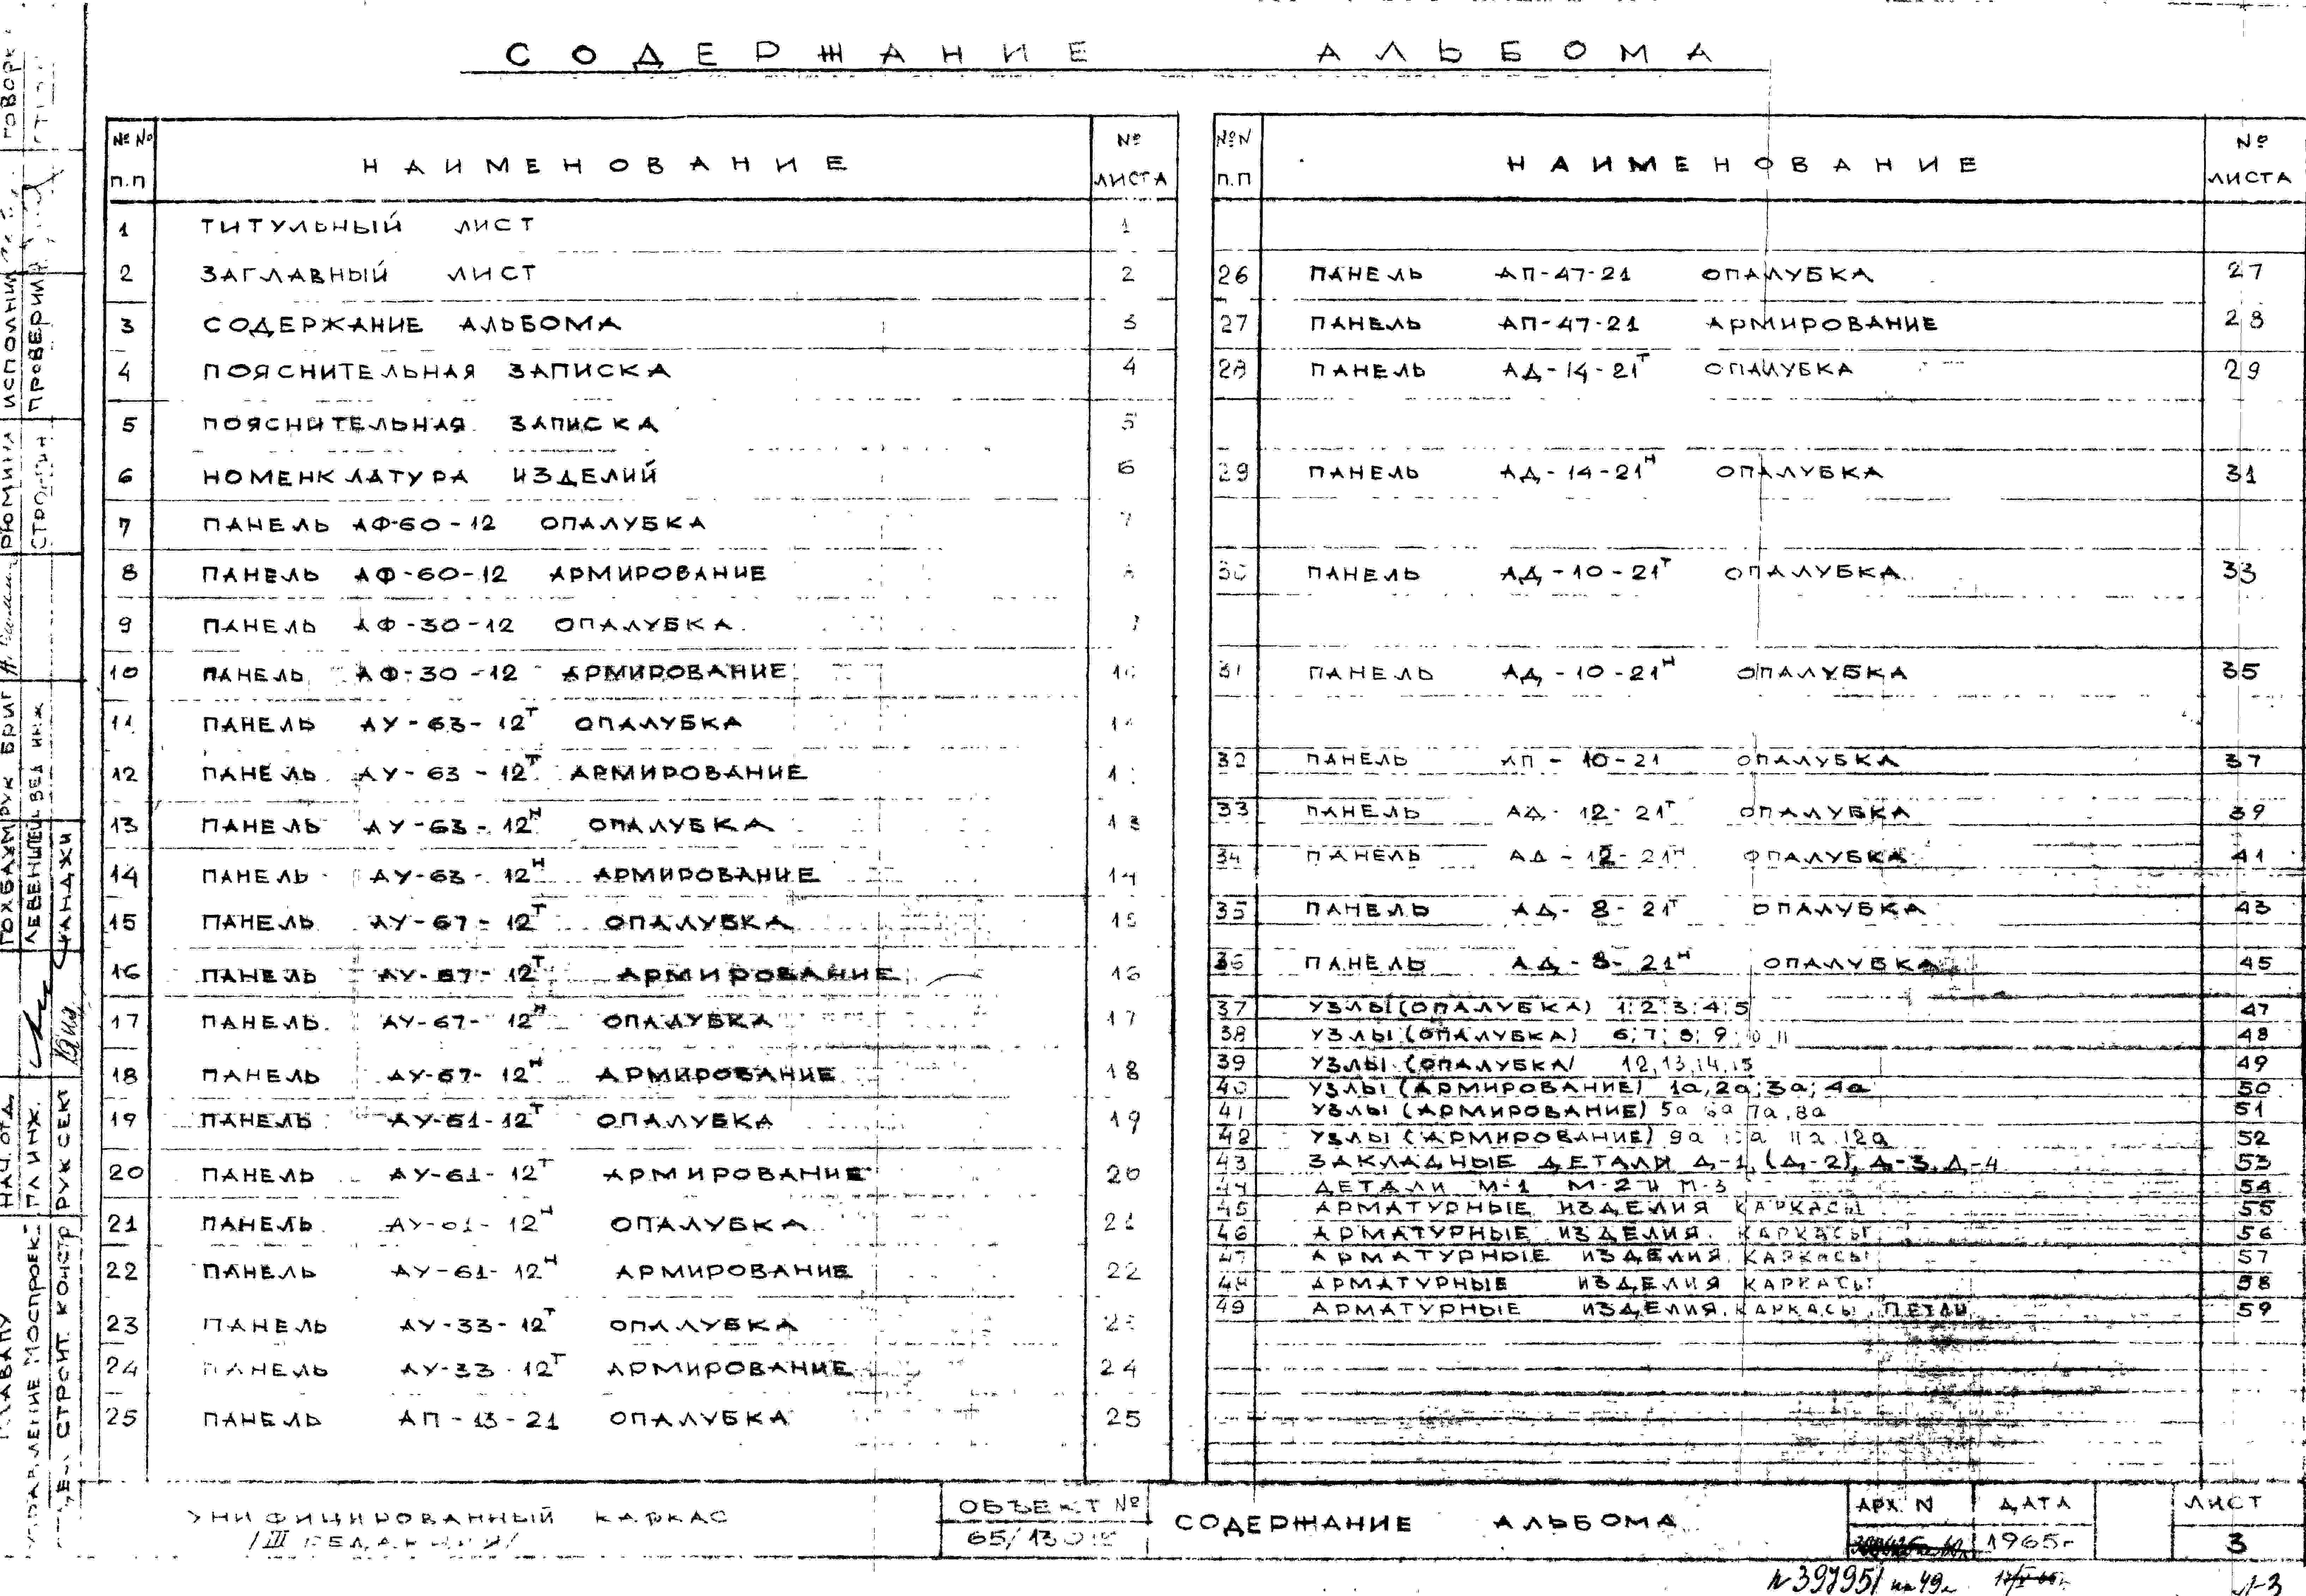 СОДЕРЖАНИЕ АЛЬБОМА
№№ п.п НАИМЕНОВАНИЕ № ЛИСТА
1 ТИТУЛЬНЫЙ ЛИСТ 1
2 ЗАГЛАВНЫЙ ЛИСТ 2
3 СОДЕРЖАНИЕ АЛЬБОМА 3
4 ПОЯСНИТЕЛЬНАЯ ЗАПИСКА 4
5 ПОЯСНИТЕЛЬНАЯ ЗАПИСКА 5
6 НОМЕНКЛАТУРА ИЗДЕЛИЙ 6
7 ПАНЕЛЬ АФ-60-12 ОПАЛУБКА 7
8 ПАНЕЛЬ АФ-60-12 АРМИРОВАНИЕ
9 ПАНЕЛЬ АФ-30-12 ОПАЛУБКА
10 ПАНЕЛЬ АФ-30-12 АРМИРОВАНИЕ 10
11 ПАНЕЛЬ АУ-63-12Т ОПАЛУБКА
12 ПАНЕЛЬ АУ-63-12Т АРМИРОВАНИЕ
13 ПАНЕЛЬ АУ-63-12Н ОПАЛУБКА 13
14 ПАНЕЛЬ АУ-63-12Н АРМИРОВАНИЕ 14
15 ПАНЕЛЬ АУ-67-12Т ОПАЛУБКА 15
16 ПАНЕЛЬ АУ-67-12Т АРМИРОВАНИЕ 16
17 ПАНЕЛЬ АУ-67-12Н ОПАЛУБКА 17
18 ПАНЕЛЬ АУ-67-12Н АРМИРОВАНИЕ 18
19 ПАНЕЛЬ АУ-61-12Т ОПАЛУБКА 19
20 ПАНЕЛЬ АУ-61-12Т АРМИРОВАНИЕ 20
21 ПАНЕЛЬ АУ-61-12Н ОПАЛУБКА 21
22 ПАНЕЛЬ АУ-61-12Н АРМИРОВАНИЕ 22
23 ПАНЕЛЬ АУ-33-12Т ОПАЛУБКА 23
24 ПАНЕЛЬ АУ-33-12Т АРМИРОВАНИЕ 24
25 ПАНЕЛЬ АП-13-21 ОПАЛУБКА 25
№№ п.п НАИМЕНОВАНИЕ № ЛИСТА
26 ПАНЕЛЬ АП-47-21 ОПАЛУБКА 27
27 ПАНЕЛЬ АП-47-21 АРМИРОВАНИЕ 28
28 ПАНЕЛЬ АД-14-21Т ОПАЛУБКА 29
29 ПАНЕЛЬ АД-14-21Н ОПАЛУБКА 31
30 ПАНЕЛЬ АД-10-21Т ОПАЛУБКА 33
31 ПАНЕЛЬ АД-10-21Н ОПАЛУБКА 35
32 ПАНЕЛЬ АП-10-21 ОПАЛУБКА 37
33 ПАНЕЛЬ АД-12-21Т ОПАЛУБКА 39
34 ПАНЕЛЬ АД-12-21Н ОПАЛУБКА 41
35 ПАНЕЛЬ АД-8-21Т ОПАЛУБКА 43
36 ПАНЕЛЬ АД-8-21Н ОПАЛУБКА 45
37 УЗЛЫ (ОПАЛУБКА) 1;2;3;4;5 47
38 УЗЛЫ (ОПАЛУБКА) 6;7;8;9 10 11 48
39 УЗЛЫ (ОПАЛУБКА) 12,13,14,15 49
40 УЗЛЫ (АРМИРОВАНИЕ) 1а,2а;3а;4а 50
41 УЗЛЫ (АРМИРОВАНИЕ) 5а 6а 7а,8а 51
42 УЗЛЫ (АРМИРОВАНИЕ) 9а 10а 11а 12а 52
43 ЗАКЛАДНЫЕ ДЕТАЛИ Д-1, (Д-2), Д-3, Д-4 53
44 ДЕТАЛИ М-1 М-2 И М-3 54
45 АРМАТУРНЫЕ ИЗДЕЛИЯ КАРКАСЫ 55
46 АРМАТУРНЫЕ ИЗДЕЛИЯ. КАРКАСЫ 56
47 АРМАТУРНЫЕ ИЗДЕЛИЯ. КАРКАСЫ 57
48 АРМАТУРНЫЕ ИЗДЕЛИЯ КАРКАСЫ 58
49 АРМАТУРНЫЕ ИЗДЕЛИЯ. КАРКАСЫ, ПЕТЛИ 59
УНИФИЦИРОВАННЫЙ КАРКАС
/III РЕДАКЦИЯ/
ОБЪЕКТ №
65/13
СОДЕРЖАНИЕ АЛЬБОМА
АРХ. N ДАТА ЛИСТ
1965г 3
N 397951
УПРАВЛЕНИЕ МОСПРОЕКТ
СТРОИТ. КОНСТР
НАЧ. ОТД.
ГЛ ИНЖ.
РУК СЕКТ
ГОХБАУМ
ЛЕВЕНШТЕЙН
РУК БРИГ
ВЕД ИНЖ
РЮМИНА
ИСПОЛНИЛ
ПРОВЕРИЛ